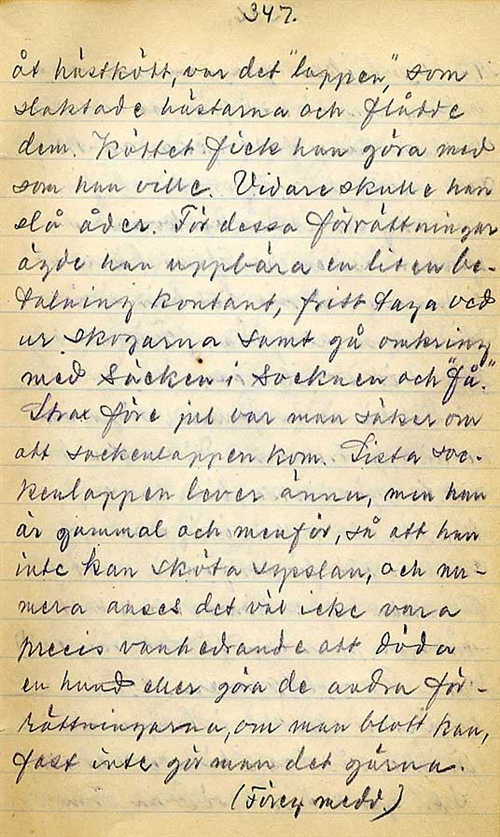 347.
åt hästkött, var det "lappen", som
slaktade hästarna och flådde
dem. Köttet fick han göra med
som han ville. Vidare skulle han
slå åder. För dessa förrättningar
ägde han uppbära en liten be-
talning kontant, fritt taga ved
ur skogarna samt gå omkring
med säcken i socknen och "få."
Strax före jul var man säker om
att sockenlappen kom. Sista soc-
kenlappen lever ännu, men han
är gammal och menför, så att han
inte kan sköta sysslan, och nu-
mera anses det väl icke vara
precis vanhedrande att döda
en hund eller göra de andra för-
rättningarna, om man blott kan,
fast inte gör man det gärna.
(Föreg medd.)